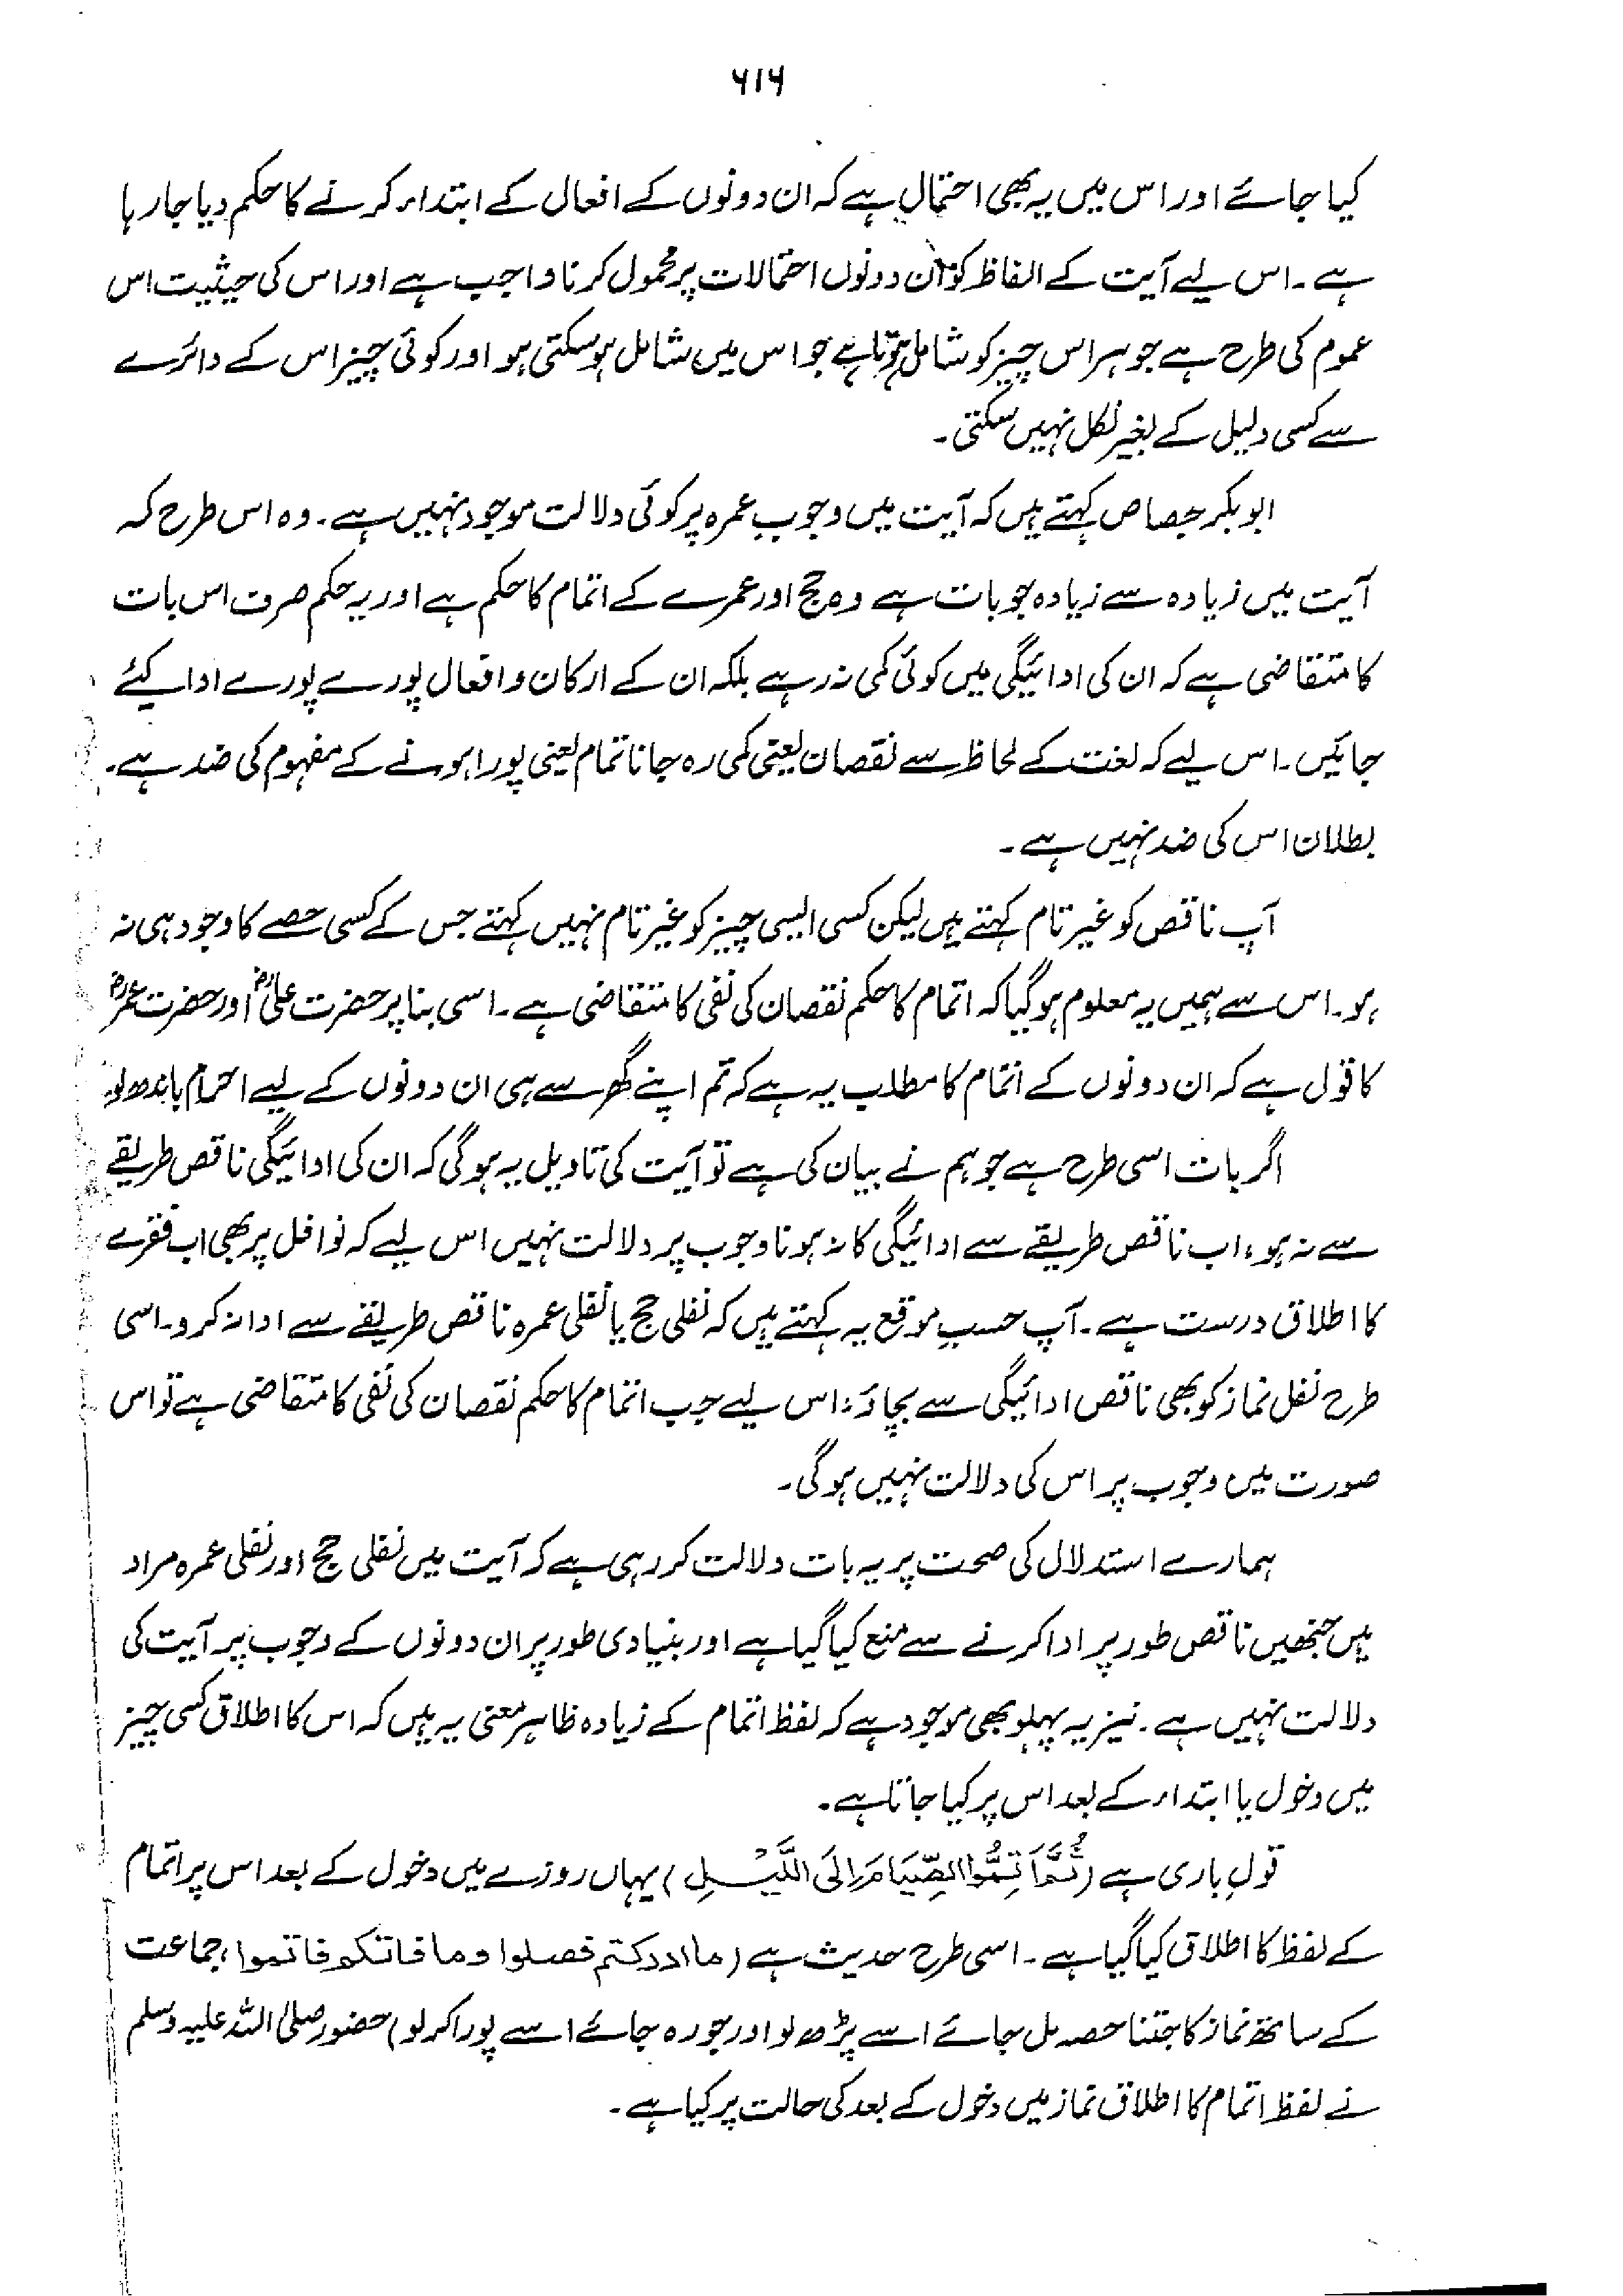 ۶۱۶
کیا جائے اور اس میں یہ بھی احتمال ہے کہ ان دونوں کے افعال کے ابتداء کرنے کا حکم دیا جا رہا
ہے۔ اس لیے آیت کے الفاظ کو ان دونوں احتمالات پر محمول کرنا واجب ہے اور اس کی حیثیت اس
عموم کی طرح ہے جو ہر اس چیز کو شامل ہوتا ہے جو اس میں شامل ہو سکتی ہو اور کوئی چیز اس کے دائرے
سے کسی دلیل کے بغیر نکل نہیں سکتی۔
ابوبکر جصاص کہتے ہیں کہ آیت میں وجوبِ عمرہ پر کوئی دلالت موجود نہیں ہے۔ وہ اس طرح کہ
آیت میں زیادہ سے زیادہ جو بات ہے وہ حج اور عمرے کے اتمام کا حکم ہے اور یہ حکم صرف اس بات
کا متقاضی ہے کہ ان کی ادائیگی میں کوئی کمی نہ رہے بلکہ ان کے ارکان و افعال پورے پورے ادا کیے
جائیں۔ اس لیے کہ لغت کے لحاظ سے نقصان یعنی کمی رہ جانا تمام یعنی پورا ہونے کے مفہوم کی ضد ہے۔
بطلان اس کی ضد نہیں ہے۔
آپ ناقص کو غیر تام کہتے ہیں لیکن کسی ایسی چیز کو غیر تام نہیں کہتے جس کے کسی حصے کا وجود ہی نہ
ہو۔ اس سے ہمیں یہ معلوم ہو گیا کہ اتمام کا حکم نقصان کی نفی کا متقاضی ہے۔ اسی بنا پر حضرت علیؓ اور حضرت عمرؓ
کا قول ہے کہ ان دونوں کے اتمام کا مطلب یہ ہے کہ تم اپنے گھر سے ہی ان دونوں کے لیے احرام باندھ لو۔
اگر بات اسی طرح ہے جو ہم نے بیان کی ہے تو آیت کی تاویل یہ ہو گی کہ ان کی ادائیگی ناقص طریقے
سے نہ ہو، اب ناقص طریقے سے ادائیگی کا نہ ہونا وجوب پر دلالت نہیں اس لیے کہ نوافل پر بھی اب فقرے
کا اطلاق درست ہے۔ آپ حسبِ موقع یہ کہتے ہیں کہ نفلی حج یا نفلی عمرہ ناقص طریقے سے ادا نہ کرو۔ اسی
طرح نفل نماز کو بھی ناقص ادائیگی سے بچاؤ؛ اس لیے جب اتمام کا حکم نقصان کی نفی کا متقاضی ہے تو اس
صورت میں وجوب پر اس کی دلالت نہیں ہو گی۔
ہمارے استدلال کی صحت پر یہ بات دلالت کر رہی ہے کہ آیت میں نفلی حج اور نفلی عمرہ مراد
ہیں جنھیں ناقص طور پر ادا کرنے سے منع کیا گیا ہے اور بنیادی طور پر ان دونوں کے وجوب پر آیت کی
دلالت نہیں ہے۔ نیز یہ پہلو بھی موجود ہے کہ لفظ اتمام کے زیادہ ظاہر معنی یہ ہیں کہ اس کا اطلاق کسی چیز
میں دخول یا ابتداء کے بعد اس پر کیا جاتا ہے۔
قولِ باری ہے (ثُمَّ اَتِمُّوا الصِّیَامَ اِلَی اللَّیْلِ) یہاں روزے میں دخول کے بعد اس پر اتمام
کے لفظ کا اطلاق کیا گیا ہے۔ اسی طرح حدیث ہے (ما ادرکتم فصلوا وما فاتکم فاتموا، جماعت
کے ساتھ نماز کا جتنا حصہ مل جائے اسے پڑھ لو اور جو رہ جائے اسے پورا کر لو) حضور صلی اللہ علیہ وسلم
نے لفظ اتمام کا اطلاق نماز میں دخول کے بعد کی حالت پر کیا ہے۔